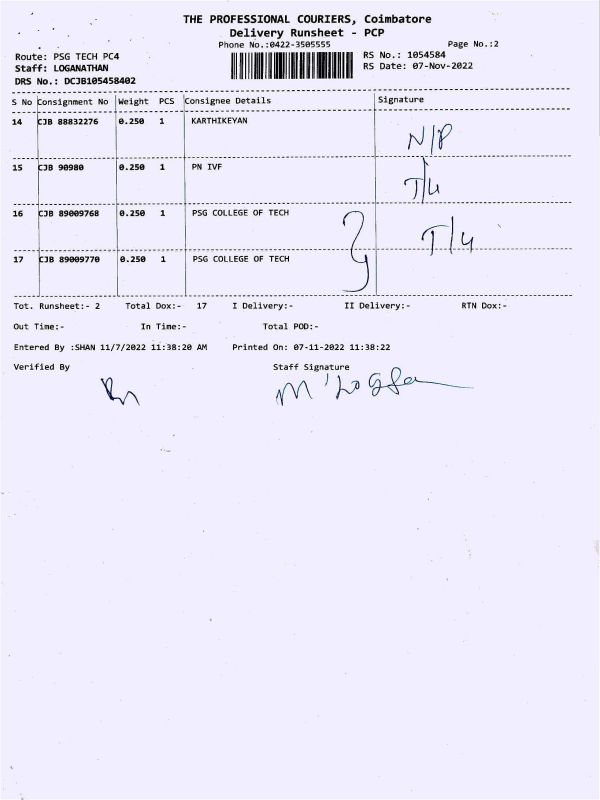 THE PROFESSIONAL COURIERS, Coimbatore
Delivery Runsheet - PCP
Phone No.:0422-3505555 Page No.:2
Route: PSG TECH PC4 RS No.: 1054584
Staff: LOGANATHAN RS Date: 07-Nov-2022
DRS No.: DCJB105458402
S No Consignment No Weight PCS Consignee Details Signature
14 CJB 88832276 0.250 1 KARTHIKEYAN N/P
15 CJB 90980 0.250 1 PN IVF T/4
16 CJB 89009768 0.250 1 PSG COLLEGE OF TECH T/4
17 CJB 89009770 0.250 1 PSG COLLEGE OF TECH
Tot. Runsheet:- 2 Total Dox:- 17 I Delivery:- II Delivery:- RTN Dox:-
Out Time:- In Time:- Total POD:-
Entered By :SHAN 11/7/2022 11:38:20 AM Printed On: 07-11-2022 11:38:22
Verified By Staff Signature